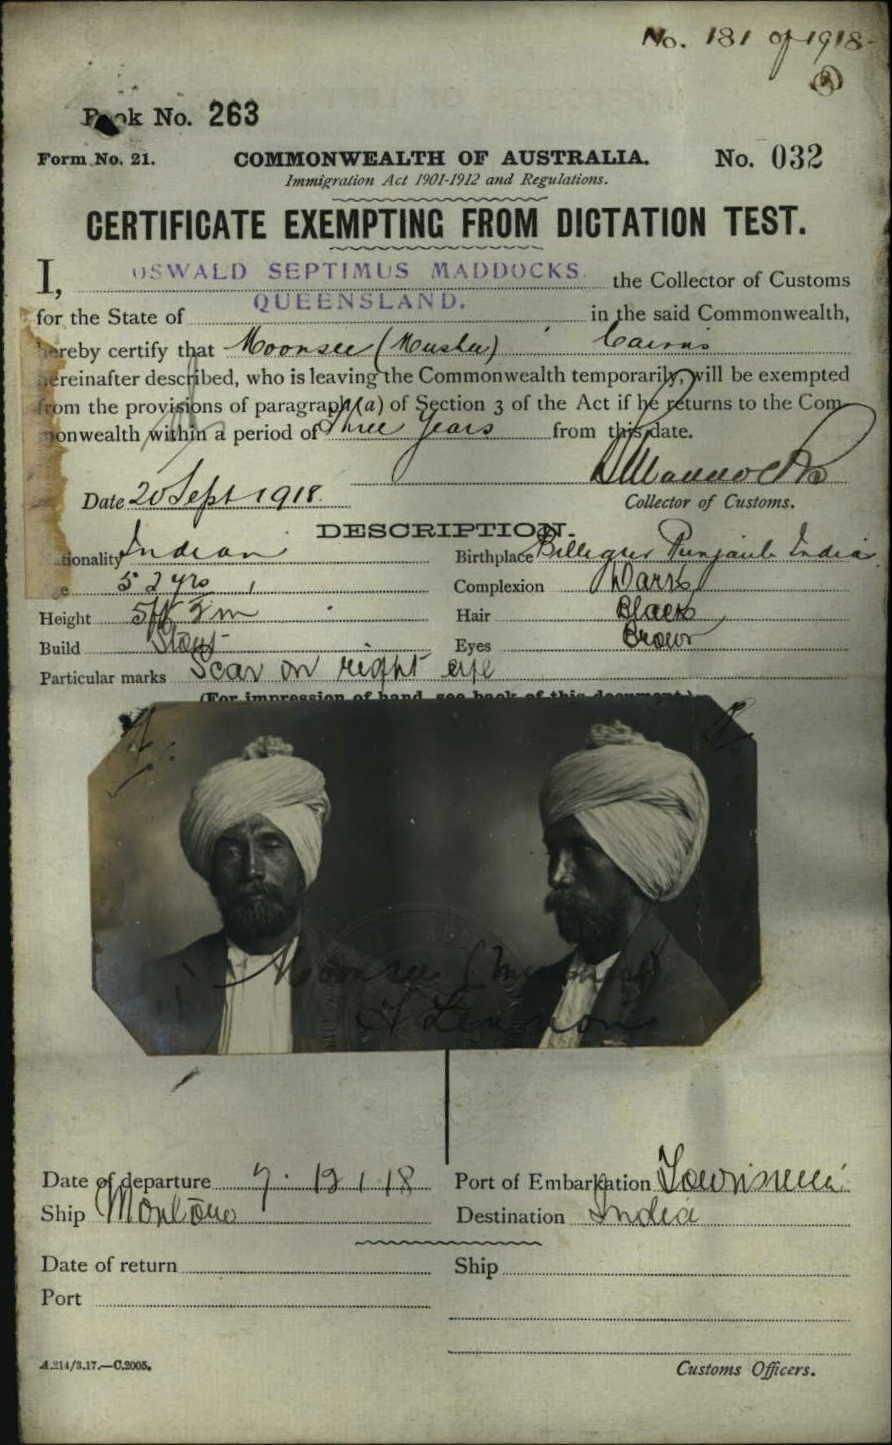 No. 181 of 1918
Book No. 263
Form No. 21. COMMONWEALTH OF AUSTRALIA. No. 032
Immigration Act 1901-1912 and Regulations.
CERTIFICATE EXEMPTING FROM DICTATION TEST.
I, OSWALD SEPTIMUS MADDOCKS the Collector of Customs
for the State of QUEENSLAND. in the said Commonwealth,
hereby certify that Moonsee (Musha) Cairns
hereinafter described, who is leaving the Commonwealth temporarily, will be exempted
from the provisions of paragraph (a) of Section 3 of the Act if he returns to the Com-
monwealth within a period of Three Years from this date.
Date 20 Sept 1918
Collector of Customs.
DESCRIPTION.
tionality Indian Birthplace Punjaub India
e 52 yrs Complexion Dark
Height 5ft Hair Black
Build Stout Eyes Brown
Particular marks Scar on right eye
(For impression of hand, see back of this document.)
Moonsee
Date of departure 7.12.18 Port of Embarkation Townsville
Ship Destination India
Date of return Ship
Port
A.214/3.17.—C.2005. Customs Officers.